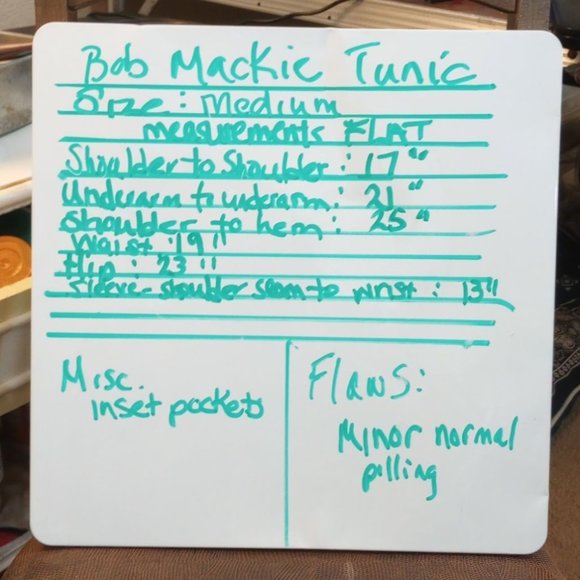 Bob Mackie Tunic
Size: Medium
measurements FLAT
Shoulder to Shoulder: 17"
Underarm to underarm: 21"
Shoulder to hem: 25"
Waist: 19"
Hip: 23"
Sleeve-shoulder seam to wrist: 13"
Misc.
inset pockets
Flaws:
Minor normal
pilling